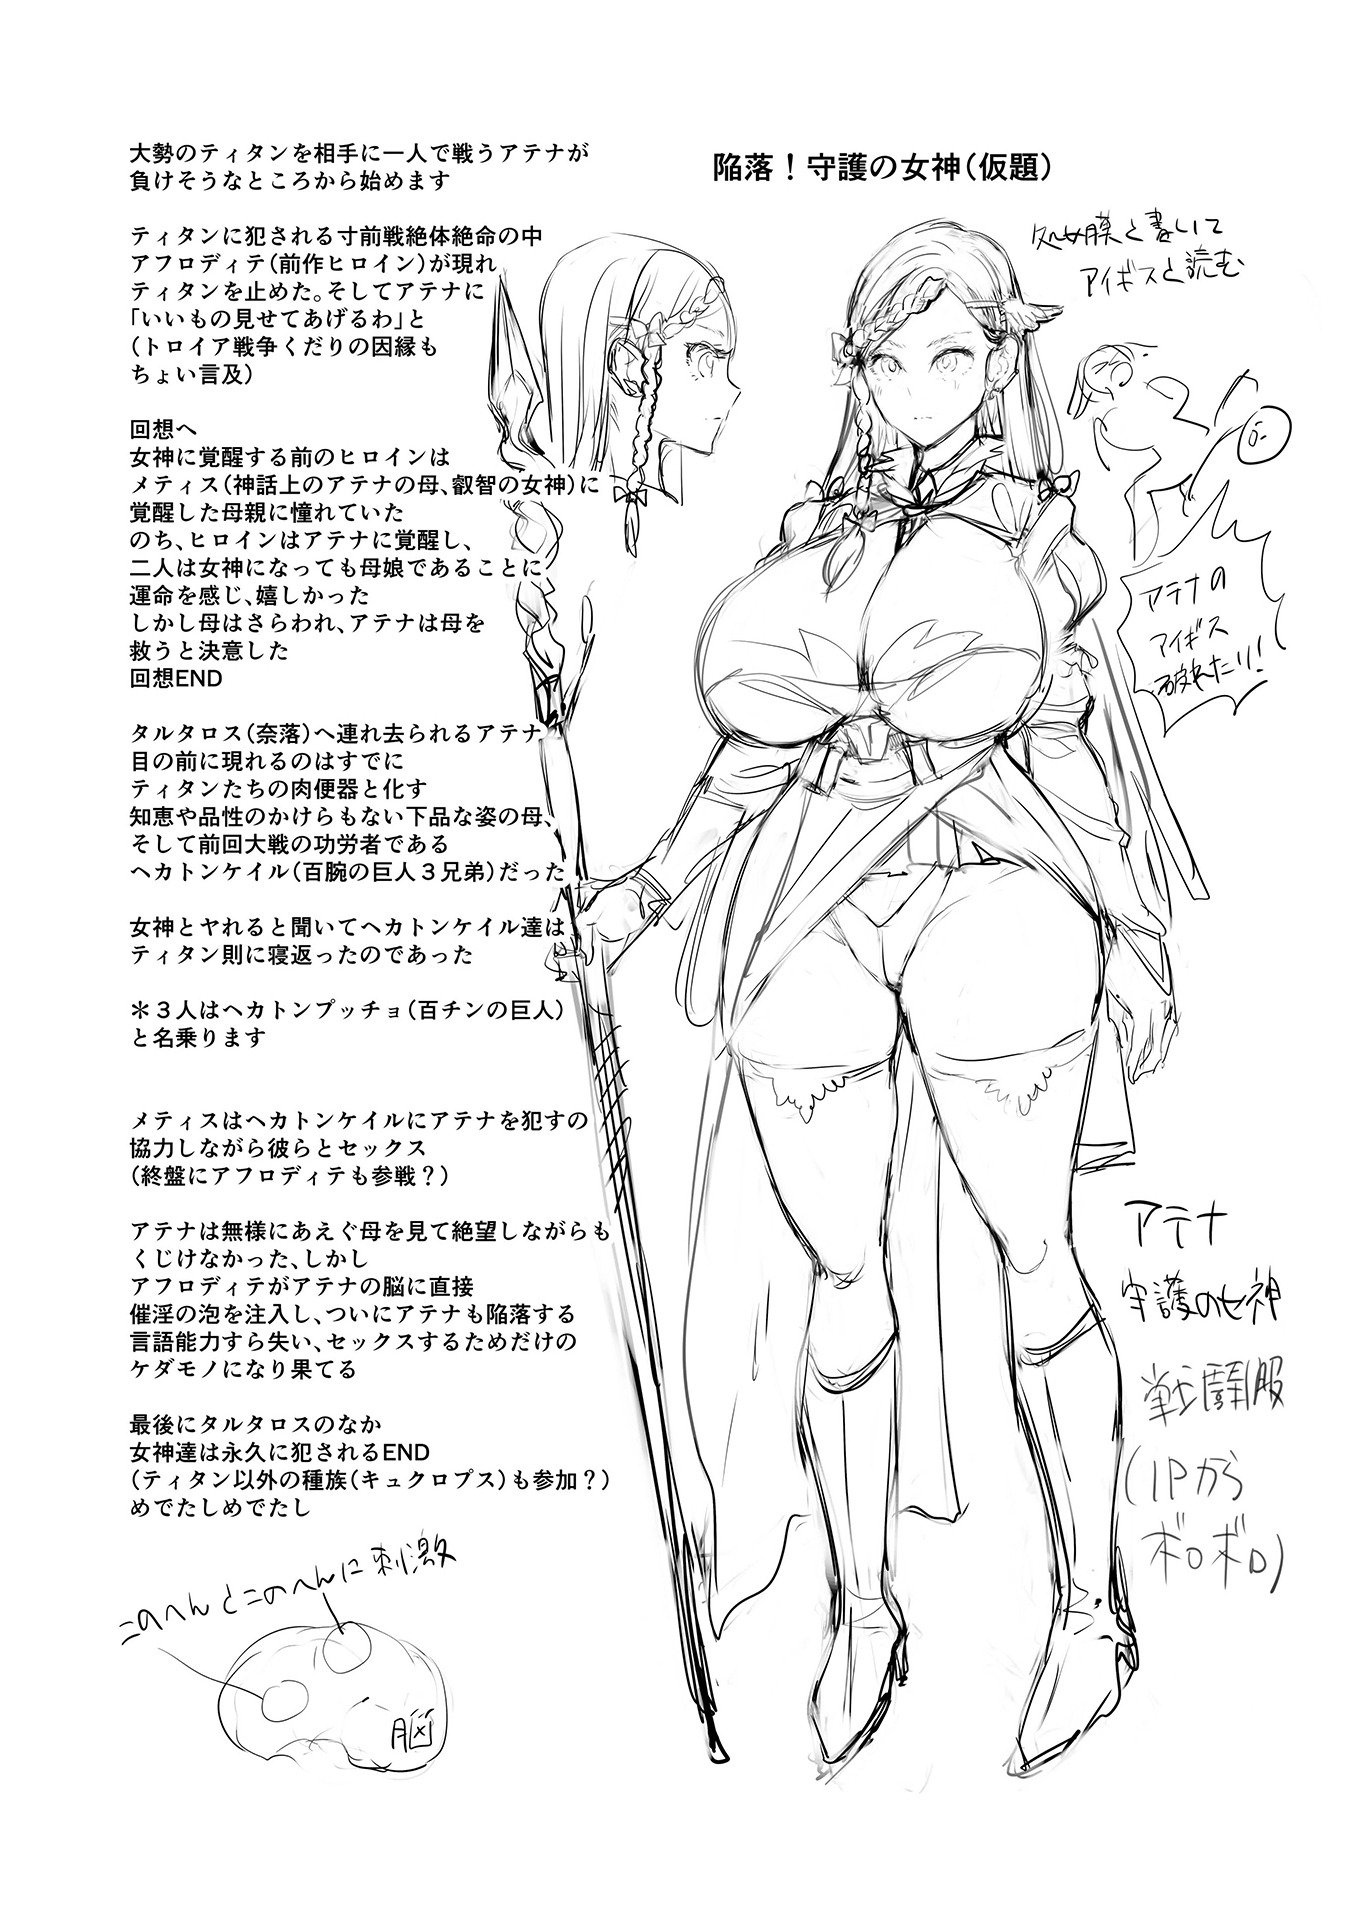 陥落！守護の女神（仮題）
大勢のティタンを相手に一人で戦うアテナが
負けそうなところから始めます
ティタンに犯される寸前戦絶体絶命の中
アフロディテ（前作ヒロイン）が現れ
ティタンを止めた。そしてアテナに
「いいもの見せてあげるわ」と
（トロイア戦争くだりの因縁も
ちょい言及）
回想へ
女神に覚醒する前のヒロインは
メティス（神話上のアテナの母、叡智の女神）に
覚醒した母親に憧れていた
のち、ヒロインはアテナに覚醒し、
二人は女神になっても母娘であることに
運命を感じ、嬉しかった
しかし母はさらわれ、アテナは母を
救うと決意した
回想END
タルタロス（奈落）へ連れ去られるアテナ
目の前に現れるのはすでに
ティタンたちの肉便器と化す
知恵や品性のかけらもない下品な姿の母、
そして前回大戦の功労者である
ヘカトンケイル（百腕の巨人３兄弟）だった
女神とヤれると聞いてヘカトンケイル達は
ティタン則に寝返ったのであった
＊３人はヘカトンプッチョ（百チンの巨人）
と名乗ります
メティスはヘカトンケイルにアテナを犯すの
協力しながら彼らとセックス
（終盤にアフロディテも参戦？）
アテナは無様にあえぐ母を見て絶望しながらも
くじけなかった、しかし
アフロディテがアテナの脳に直接
催淫の泡を注入し、ついにアテナも陥落する
言語能力すら失い、セックスするためだけの
ケダモノになり果てる
最後にタルタロスのなか
女神達は永久に犯されるEND
（ティタン以外の種族（キュクロプス）も参加？）
めでたしめでたし
このへんとこのへんに刺激
脳
処女膜と書いて
アイギスと読む
アテナの
アイギス
破れたり！
アテナ
守護の女神
戦闘服
（1Pから
ボロボロ）